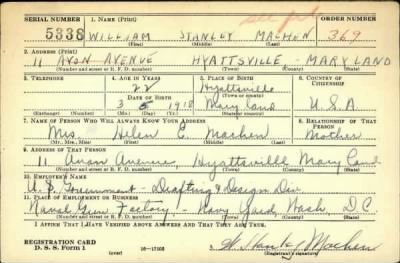 SERIAL NUMBER 1. NAME (Print) ORDER NUMBER
5338 WILLIAM STANLEY MACHEN 369
(First) (Middle) (Last)
2. ADDRESS (Print)
11 AVON AVENUE HYATTSVILLE - MARYLAND
(Number and street or R. F. D. number) (Town) (County) (State)
3. TELEPHONE 4. AGE IN YEARS 5. PLACE OF BIRTH 6. COUNTRY OF CITIZENSHIP
22 Hyattsville
DATE OF BIRTH (Town or county)
3 5 1918 Maryland U.S.A
(Exchange) (No.) (Mo.) (Day) (Yr.) (State or country)
7. NAME OF PERSON WHO WILL ALWAYS KNOW YOUR ADDRESS 8. RELATIONSHIP OF THAT PERSON
Mrs. Helen E. Machen Mother
(Mr., Mrs., Miss) (First) (Middle) (Last)
9. ADDRESS OF THAT PERSON
11 Avon Avenue, Hyattsville Maryland
(Number and street or R. F. D. number) (Town) (County) (State)
10. EMPLOYER'S NAME
U.S. Government - Drafting & Design Div
11. PLACE OF EMPLOYMENT OR BUSINESS
Naval Gun Factory - Navy Yard Wash. D.C.
(Number and street or R. F. D. number) (Town) (County) (State)
I AFFIRM THAT I HAVE VERIFIED ABOVE ANSWERS AND THAT THEY ARE TRUE.
REGISTRATION CARD
D. S. S. Form 1 (over) 16-17105 W. Stanley Machen
(Registrant's signature)